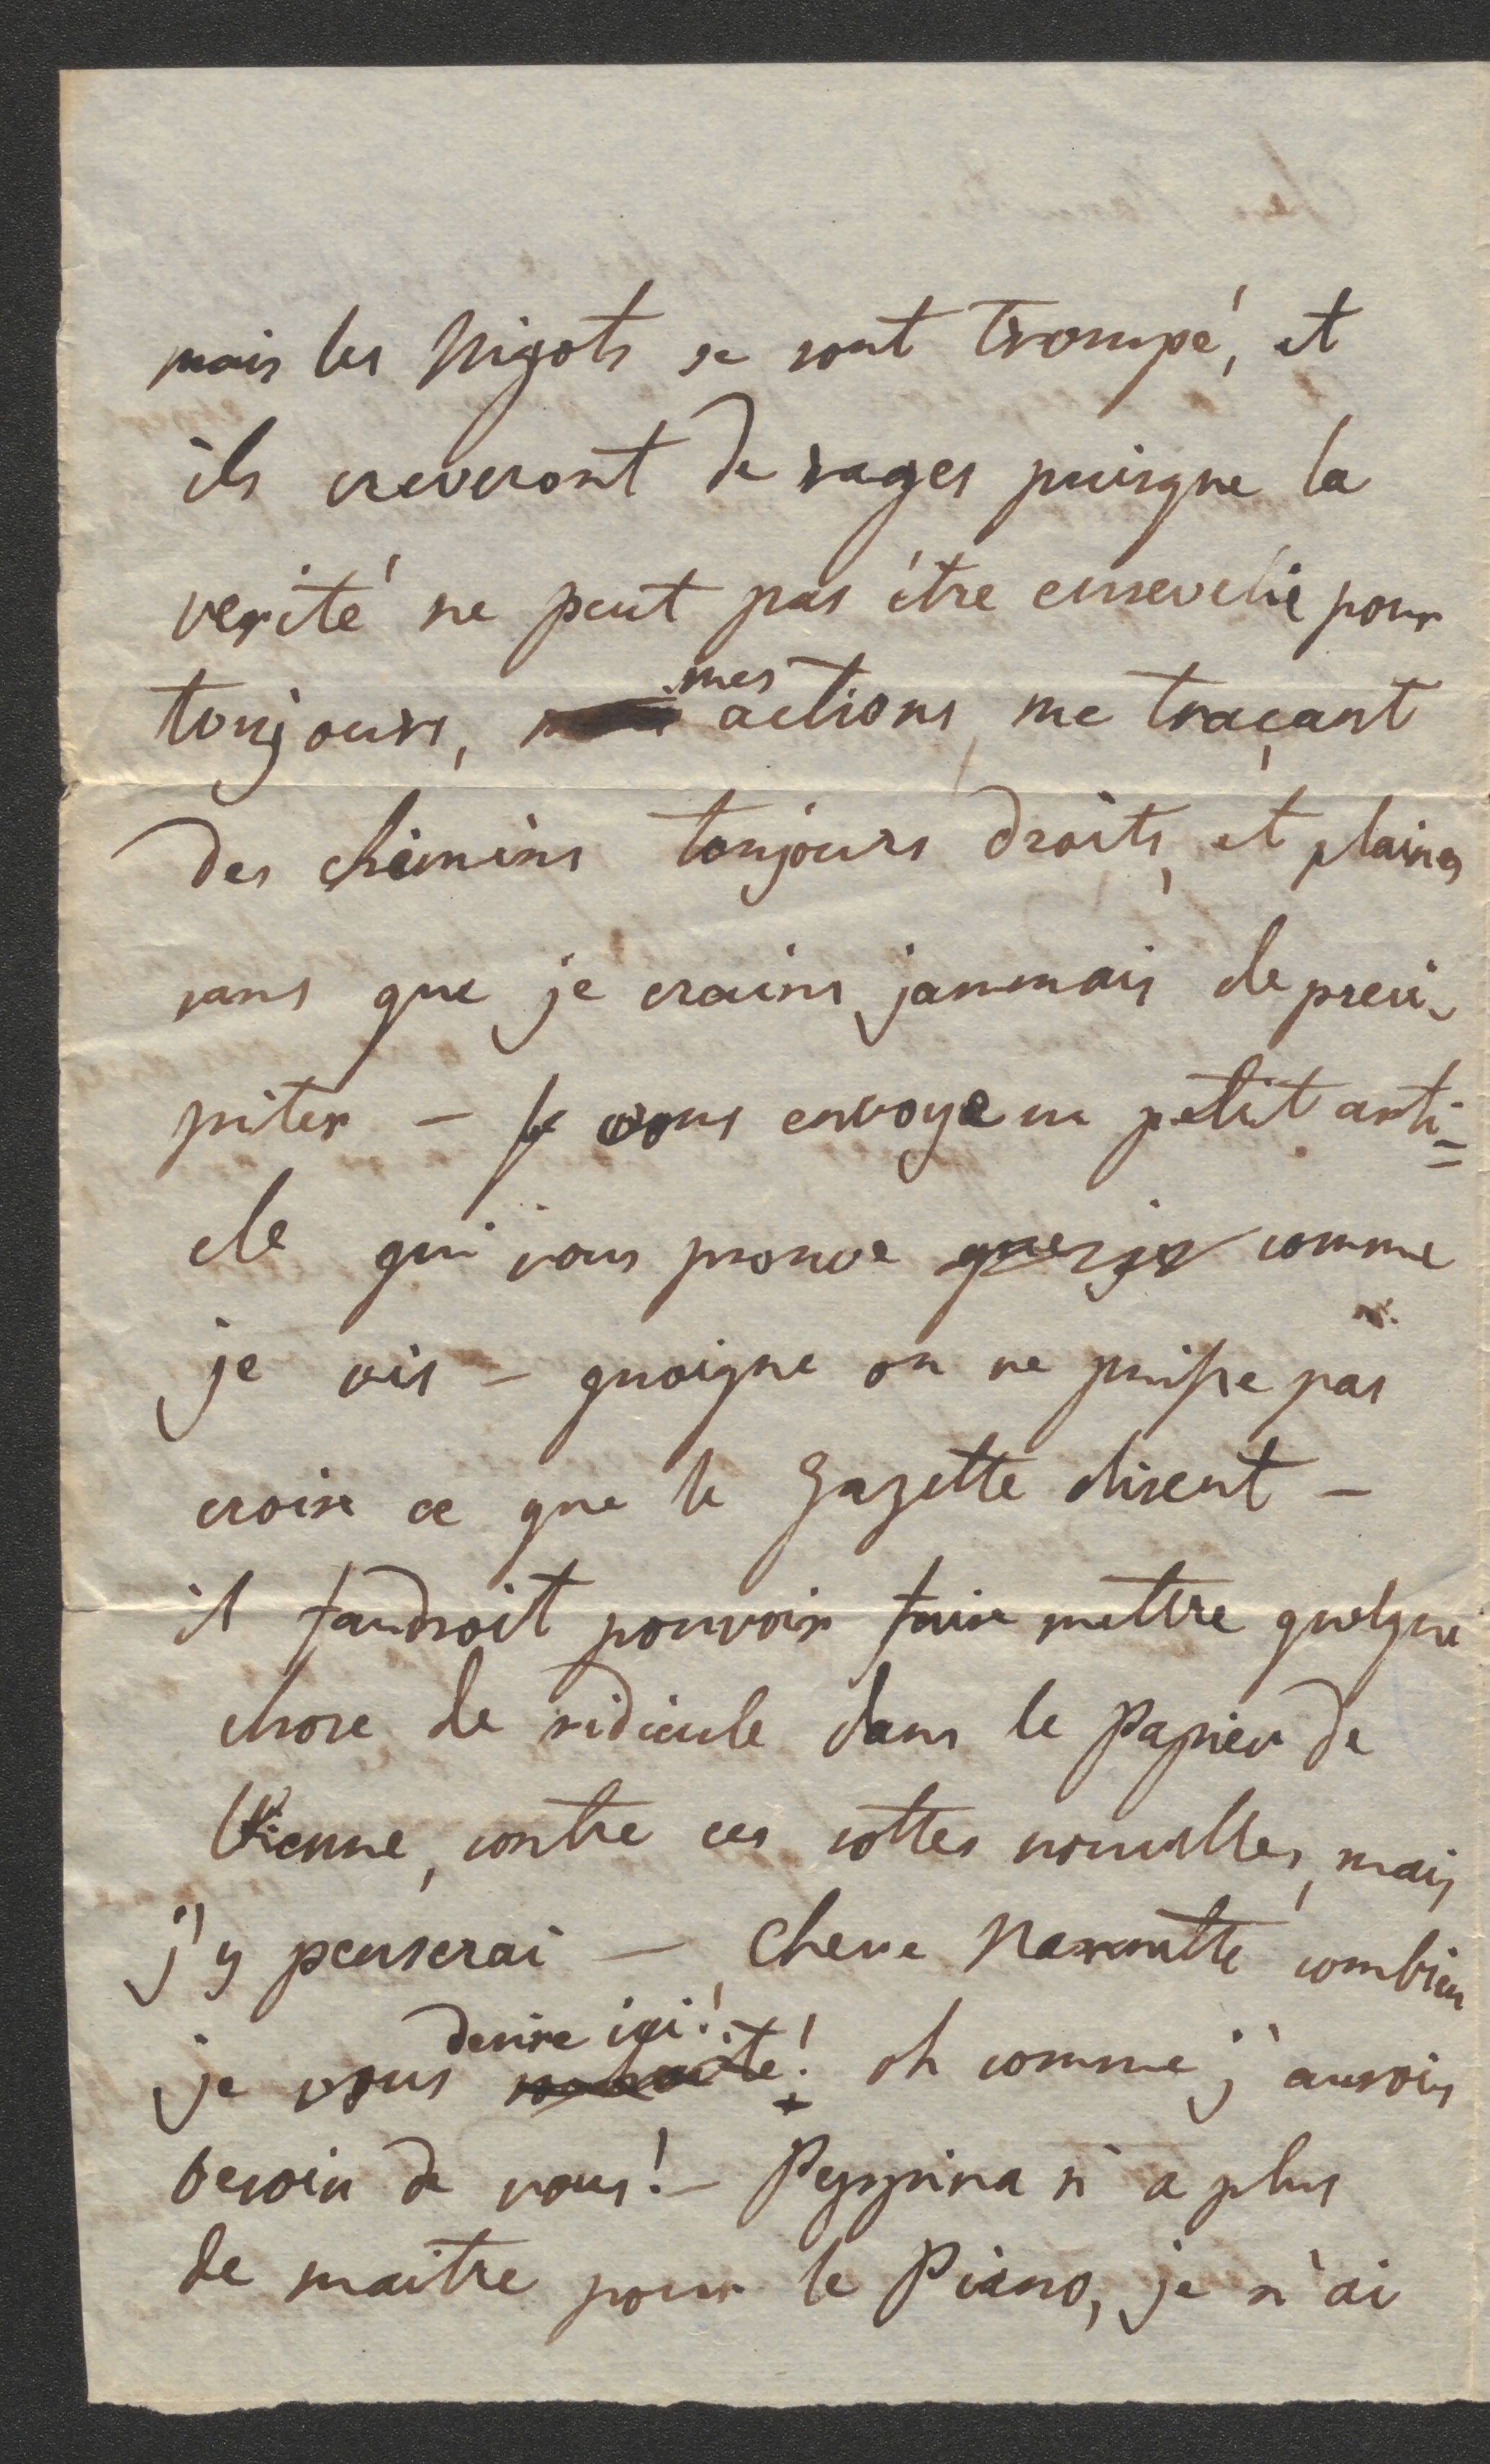 mais les Nigots se sont trompé, et
ils creveront de rages puisque la
verité ne peut pas être ensevelie pour
toujours, mes actions, me traçant
des chemins toujours droits, et plaines
sans que je crains jammais de preci-
piter – je vous envoye un petit arti=
cle qui vous prouve que je comme
je vis – quoique on ne puisse pas
croire ce que le Gazette disent –
il faudroit pouvoir faire mettre quelque
chose de ridicule dans le Papier de
Vienne, contre ces sottes nouvelles, mais
j'y penserai – Chere Nannette combien
je vous souhaite! desire ici! oh comme j'aurois
besoin de vous! – Peppina n'a plus
de maitre pour le Piano, je n'ai